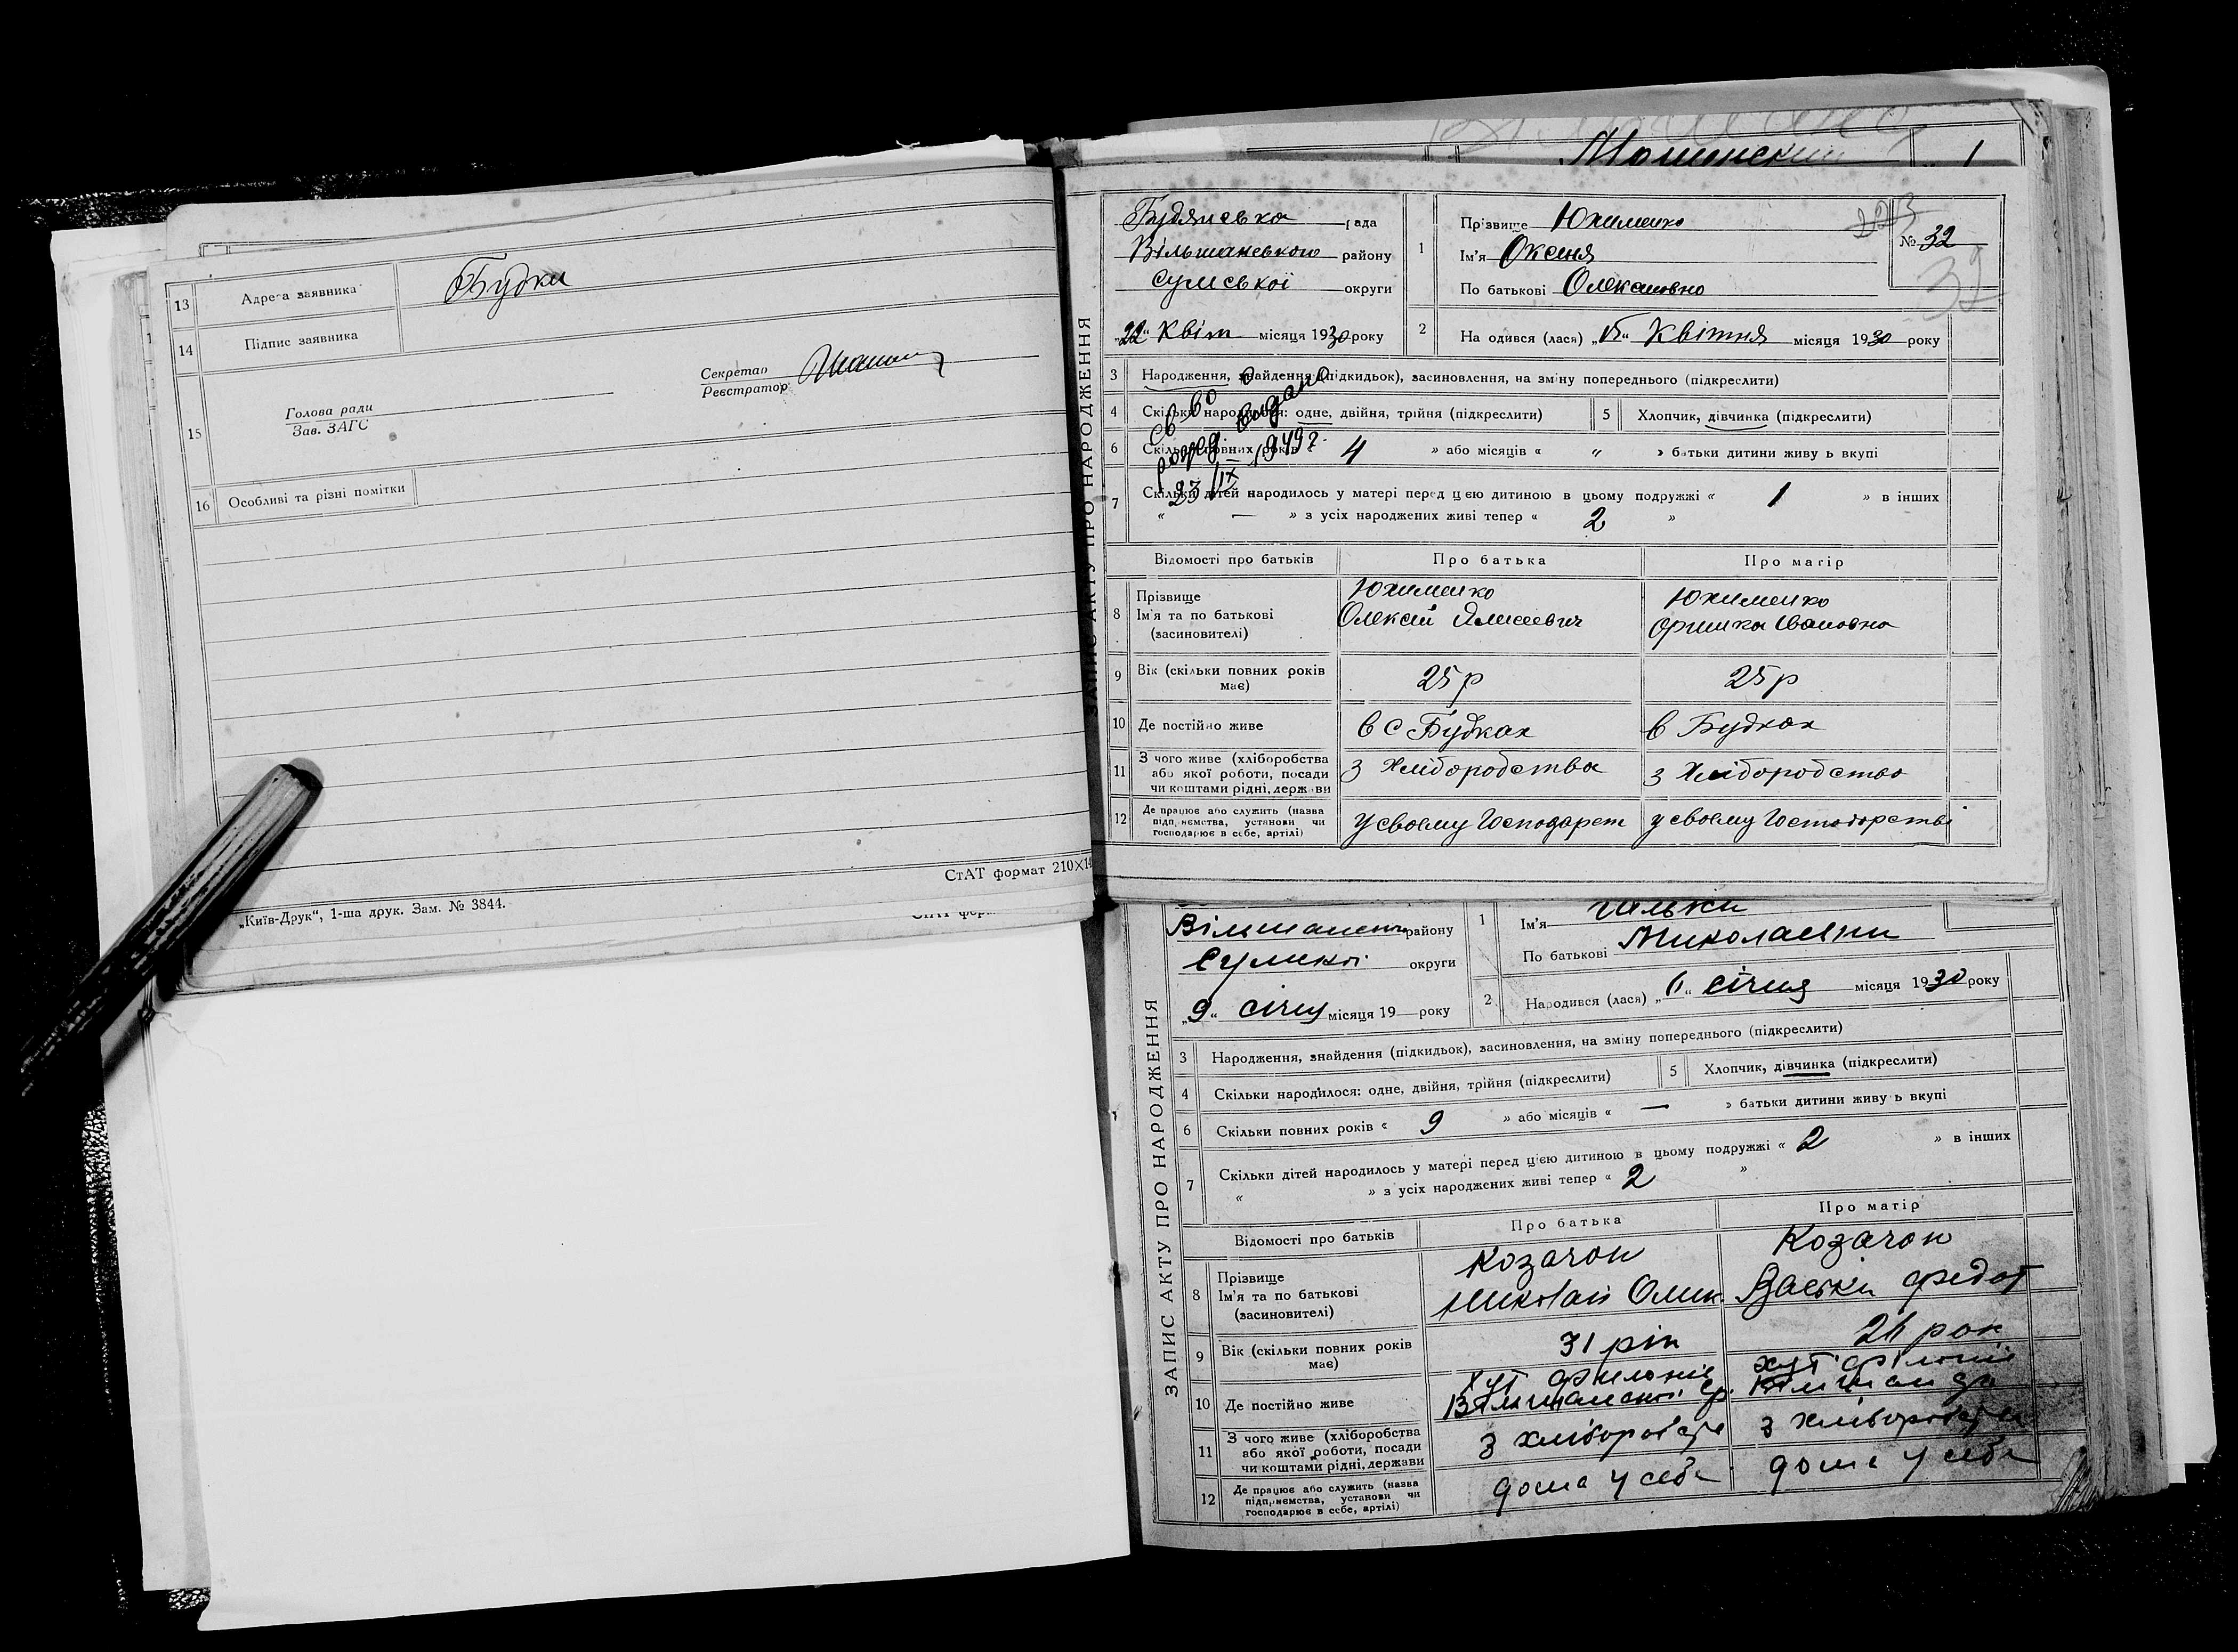 13 Адреса заявника Будки
14 Підпис заявника
15 Голова ради
Зав. ЗАГС
Секретар
Реєстратор
16 Особливі та різні помітки
СтАТ формат 210×14
„Київ-Друк“, 1-ша друк. Зам. № 3844.
1
ЗАПИС АКТУ ПРО НАРОДЖЕННЯ
Будянська рада
Вільшанського району
Сумської округи
„22“ Квіт місяця 1930 року
1 Прізвище Юхименко
Ім'я Оксеня
По батькові Олексіовно
223
№ 32
32
2 На одився (лася) „15“ Квітня місяця 1930 року
3 Народження, знайдення (підкидьок), засиновлення, на зміну попереднього (підкреслити)
4 Скільки народилося: одне, двійня, трійня (підкреслити)
5 Хлопчик, дівчинка (підкреслити)
св во о
рожд выдано
23/IX 1949 г.
6 Скільки повних років « 4 » або місяців « „ » батьки дитини живу ь вкупі
7 Скільки дітей народилось у матері перед цією дитиною в цьому подружжі « 1 » в інших
« — » з усіх народжених живі тепер « 2 »
Відомості про батьків Про батька Про матір
8 Прізвище
Ім'я та по батькові
(засиновителі)
Юхименко
Олексій
Юхименко
Оришка Івановно
9 Вік (скільки повних років має) 25 р 25 р
10 Де постійно живе в с Будках в Будках
11 З чого живе (хліборобства
або якої роботи, посади
чи коштами рідні, держави
з Хлібородства з Хлібородство
12 Де працює або служить (назва
підприємства, установи чи
господарює в себе, артілі)
у своему Господарст у своему Господорстві
ЗАПИС АКТУ ПРО НАРОДЖЕННЯ
району
округи
„9“ січня місяця 19 року
1 Ім'я
По батькові Миколаевни
2 Народився (лася) січня місяця 1930 року
3 Народження, знайдення (підкидьок), засиновлення, на зміну попереднього (підкреслити)
4 Скільки народилося: одне, двійня, трійня (підкреслити)
5 Хлопчик, дівчинка (підкреслити)
6 Скільки повних років « 9 » або місяців « — » батьки дитини живу ь вкупі
7 Скільки дітей народилось у матері перед цією дитиною в цьому подружжі « 2 » в інших
« » з усіх народжених живі тепер « 2 »
Відомості про батьків Про батька Про матір
8 Прізвище
Ім'я та по батькові
(засиновителі)
Козачок
Николай
Козачок
Федот
9 Вік (скільки повних років має) 31 рік рок
10 Де постійно живе хут хут
11 З чого живе (хліборобства
або якої роботи, посади
чи коштами рідні, держави
з з
12 Де працює або служить (назва
підприємства, установи чи
господарює в себе, артілі)
дома у себе дома у себе